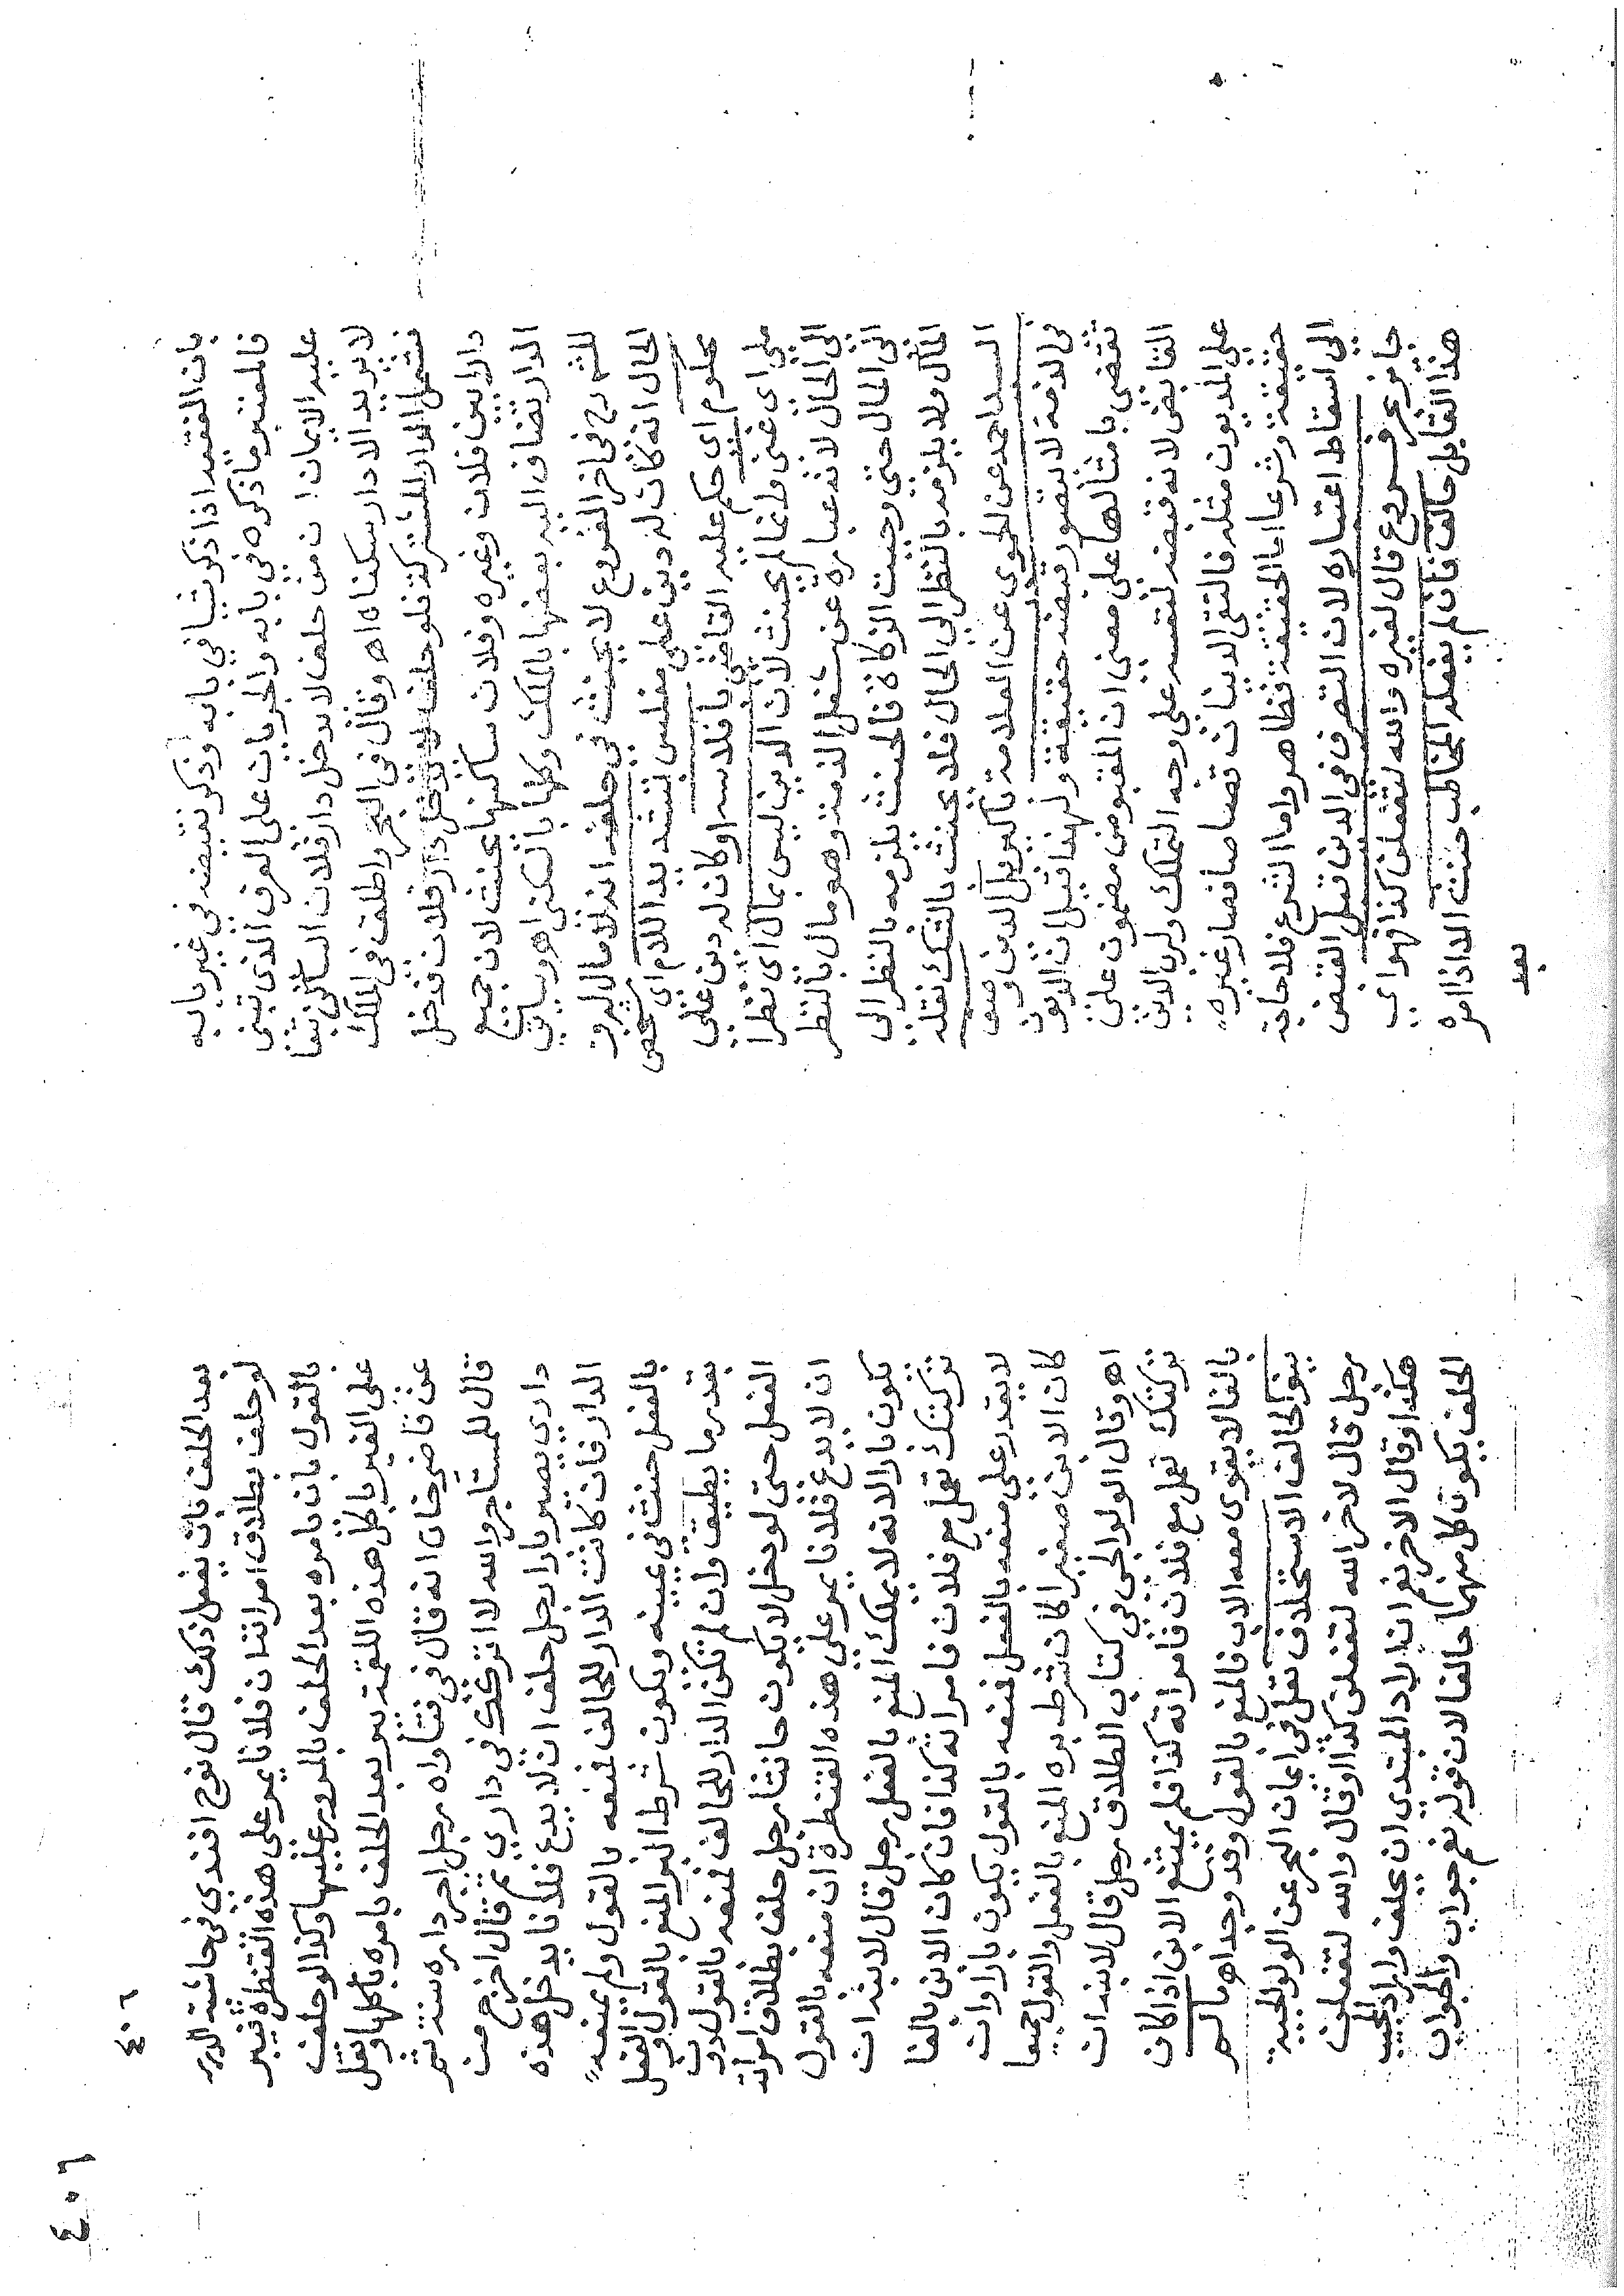 بان الفقيه اذا ذكر شيا في بابه وذكر نقيضه في غير بابه
فالمعتبر ما ذكره في بابه والجريان على العرف الذي تبنى
عليه الايمان ان من حلف لا يدخل دار فلان الساكن بها
لا يريد الا دار سكناه اه وقال في البحر واطلق في الملك
فشمل الدار المشتركة فلو حلف لا يدخل دار فلان فدخل
دارا بين فلان وغيره وفلان ساكنها يحنث لان جميع
الدار تضاف اليه بعضها بالملك وكلها بالسكنى اه وسياتي
في اخر الفروع لا يحنث في حلفه انه لا مال له و
الحال انه كان له دين على مفلس بتشديد اللام اي شخص
محكوم اي حكم عليه القاضي بافلاسه او كان له دين على
ملي اي غني وانما لم يحنث لان الدين ليس بمال اي نظرا
الى الحال لانه عبارة عن شغل الذمة وهو مال بالنظر
الى المال حتى وجبت الزكاة فالحنث يلزمه بالنظر الى
المآل ولا يلزمه بالنظر الى الحال فلا يحنث بالشك نقله
السيد احمد عن الحموى عن العلامة بل الدين وصف
في الذمة لا يتصور قبضه حقيقة ولهذا قيل ان الديون
تقتضى بامثالها على معنى ان المقبوض مضمون على
القابض لانه قبضه لنفسه على وجه التملك ولرب الدين
على المديون مثله فالتقى الدينان قصاصا فصار غيره
حقيقة وشرعا اما الحقيقة فظاهر واما الشرع فلا حاجة
الى اسقاط اعتباره لان التصرف في الدين قبل القبض
جايز بحر فروع قال لغيره والله لتفعلن كذا فهو اي
هذا القايل حالف فان لم يفعله المخاطب حنث الا اذا امره
بعد
٤٠٦
٤٠٦
بعد الحلف بان يفعل ذلك قال نوح افندي في حاشية الدرر
لو حلف بطلاق امراته ان فلانا يمر على هذه القنطرة يبر
بالقول بان يامره بعد الحلف بالمرور عليها وكذا لو حلف
على الغير باكل هذه اللقمة يبر بعد الحلف بامره باكلها ونقل
عن قاضي خان انه قال في فتاواه رجل اجر داره سنة ثم
قال للمستاجر والله لا اتركك في داري ثم قال اخرج من
داري يصير بارا رجل حلف ان لا يدع فلانا يدخل هذه
الدار فان كانت الدار للحالف فمنعه بالقول ولم يمنعه
بالفعل حنث في يمينه ويكون شرط البر المنع بالقول والفعل
بقدر ما يطيق وان لم تكن الدار للحالف فمنعه بالقول دون
الفعل حتى لو دخل لا يكون حانثا رجل حلف بطلاق امراته
ان لا يدع فلانا يمر على هذه القنطرة ان منعه بالقول
يكون بارا لانه لا يملك المنع بالفعل رجل قال لابنه ان
تركتك تعمل مع فلان فامراته كذا فان كان الابن بالغا
لا يقدر على منعه بالفعل فمنعه بالقول يكون بارا وان
كان الابن صغيرا كان شرط بره المنع بالفعل والقول جميعا
اه وقال الولوالجي في كتاب الطلاق رجل قال لابنه ان
تركتك تعمل مع فلان فامراته كذا فلم يمتنع الابن اذا كان
بالغا لا يقوى معه الاب فالمنع بالقول وقد وجد اه ما لم
ينو الحالف الاستحلاف نقل في ايمان البحر عن الولوالجية
رجل قال لاخر الله لتفعلن كذا او قال والله لتفعلن
هكذا وقال الاخر نعم ان اراد المبتدي ان يحلف واراد المجيب
الحلف يكون كل منهما حالفا لان قوله نعم جواب والجواب